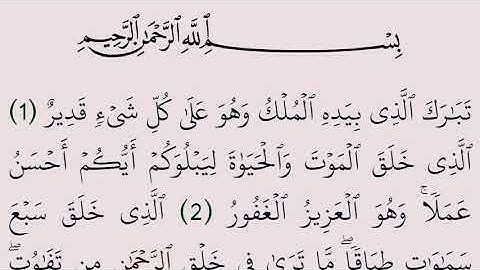 بِسْمِ ٱللَّهِ ٱلرَّحْمَٰنِ ٱلرَّحِيمِ
تَبَٰرَكَ ٱلَّذِى بِيَدِهِ ٱلْمُلْكُ وَهُوَ عَلَىٰ كُلِّ شَىْءٍ قَدِيرٌ (1)
ٱلَّذِى خَلَقَ ٱلْمَوْتَ وَٱلْحَيَوٰةَ لِيَبْلُوَكُمْ أَيُّكُمْ أَحْسَنُ
عَمَلًا ۚ وَهُوَ ٱلْعَزِيزُ ٱلْغَفُورُ (2) ٱلَّذِى خَلَقَ سَبْعَ
سَمَٰوَٰتٍ طِبَاقًا ۖ مَّا تَرَىٰ فِى خَلْقِ ٱلرَّحْمَٰنِ مِن تَفَٰوُتٍ ۖ